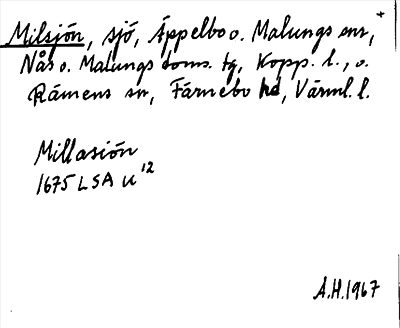 Milsjön, sjö, Äppelbo o. Malungs snr, +
Nås o. Malungs doms. tg, Kopp. l., o.
Rämens sn, Färnebo hd, Värml. l.
Millasiön
1675 LSA U 12
A.H. 1967